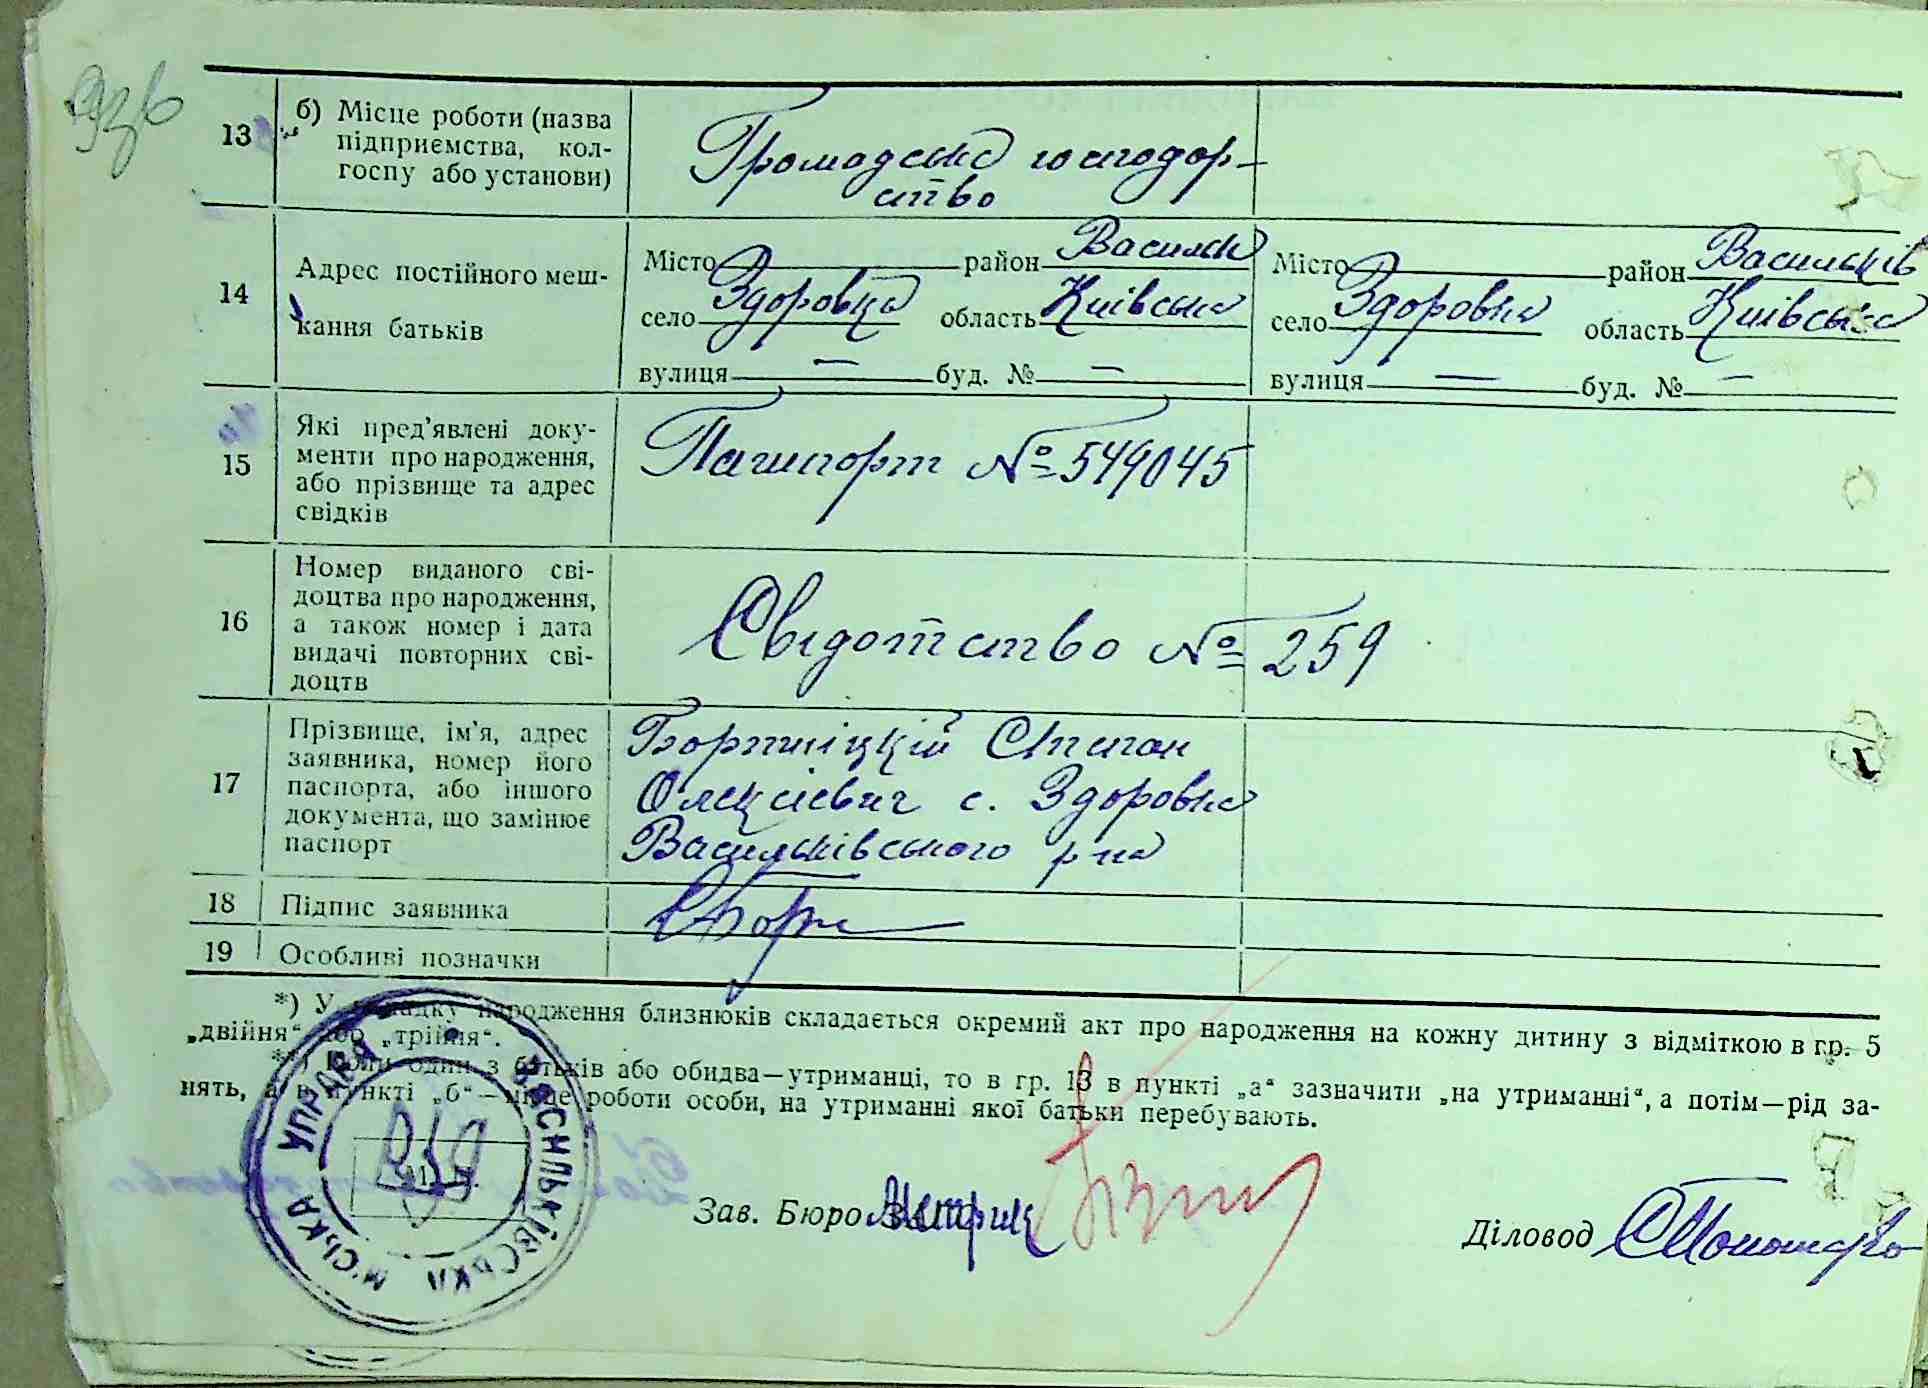 93б
13 б) Місце роботи (назва
підприємства, кол-
госпу або установи)
Громадське господар-
ство
14 Адрес постійного меш-
кання батьків
Місто район Васильк
село Здоровка область Київська
вулиця — буд. № —
Місто район Васильків
село Здоровка область Київська
вулиця — буд. № —
15 Які пред’явлені доку-
менти про народження,
або прізвище та адрес
свідків
Пашпорт № 549045
16 Номер виданого сві-
доцтва про народження,
а також номер і дата
видачі повторних сві-
доцтв
Свідотство № 259
17 Прізвище, ім’я, адрес
заявника, номер його
паспорта, або іншого
документа, що замінює
паспорт
Бортніцкій Степан
Олексієвич с. Здоровка
Васильківського р-на
18 Підпис заявника
19 Особливі позначки
*) У випадку народження близнюків складається окремий акт про народження на кожну дитину з відміткою в гр. 5
„двійня“ або „трійня“.
**) Коли один з батьків або обидва—утриманці, то в гр. 13 в пункті „а“ зазначити „на утриманні“, а потім—рід за-
нять, а в пункті „б“—місце роботи особи, на утриманні якої батьки перебувають.
ВАСИЛЬКІВСЬКА МІСЬКА УПРАВА
Зав. Бюро
Діловод